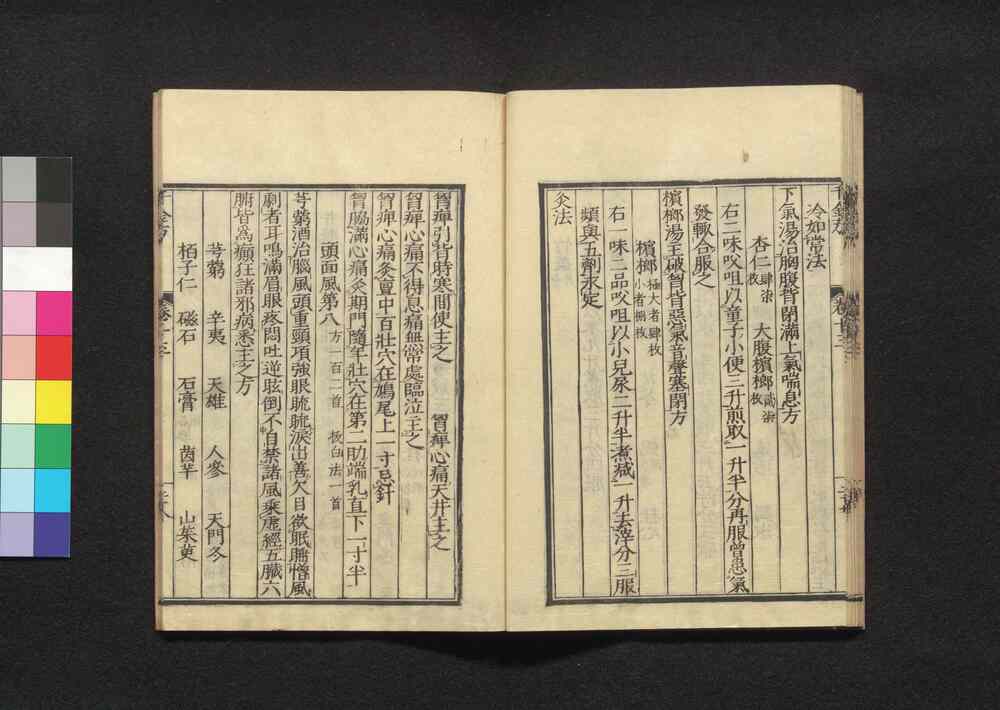 冷如常法
下氣湯治胸腹背閉滿上氣喘息方
杏仁肆拾枚 大腹檳榔貳拾枚
右二味㕮咀以童子小便三升煎取一升半分再服曾患氣
發輙合服之
檳榔湯主破胷背惡氣音聲塞閉方
檳榔極大者肆枚小者捌枚
右一味二品㕮咀以小兒尿二升半煮減一升去滓分三服
頻與五劑永定
灸法
胷痹引背時寒間使主之 胷痹心痛天井主之
胷痹心痛不得息痛無常處臨泣主之
胷痹心痛灸亶中百壯穴在鳩尾上一寸忌針
胷脇滿心痛灸期門隨年壯穴在第二肋端乳直下一寸半
頭面風第八方一百二首 拔白法一首
芎藭酒治腦風頭重頭項強眼䀮䀮淚出善欠目欲眠睡憎風
劇者耳鳴滿眉眼疼悶吐逆眩倒不自禁諸風乘虛經五臟六
腑皆爲癲狂諸邪病悉主之方
芎藭 辛夷 天雄 人參 天門冬
栢子仁 磁石 石膏 茵芋 山茱萸